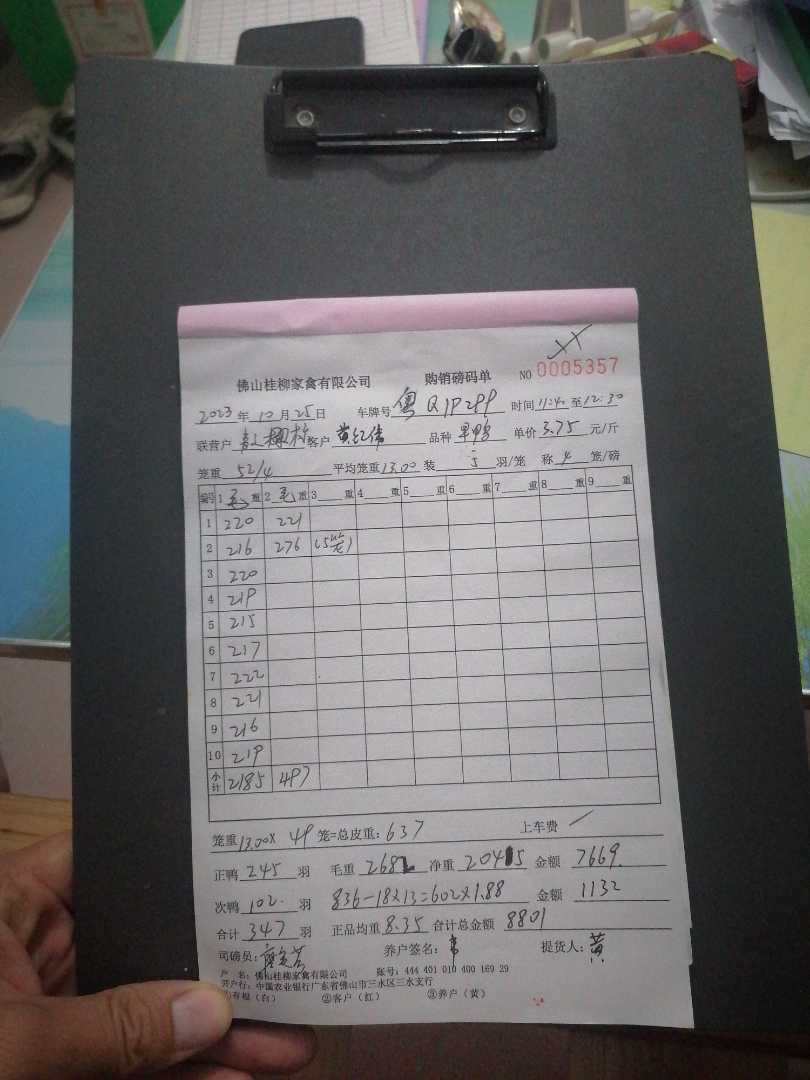 佛山桂柳家禽有限公司 购销磅码单 NO 0005357
2023年10月25日 车牌号 粤Q1P299 时间11:4 至12:30
联营户 客户 黄红伟 品种 单价3.75元/斤
笼重 52/4 平均笼重13.00 装 5 羽/笼 称 4 笼/磅
编号 1 毛 重 2 毛 重 3 重 4 重 5 重 6 重 7 重 8 重 9 重
1 220 221
2 216 276 (5笼)
3 220
4 219
5 215
6 217
7 222
8 221
9 216
10 219
小计 2185 497
笼重13.00× 49 笼=总皮重:637 上车费 /
正鸭 245 羽 毛重 2682 净重 2045 金额 7669
次鸭 102 羽 836-18×13=602×1.88 金额 1132
合计 347 羽 正品均重 8.35 合计总金额 8801
司磅员: 养户签名: 韦 提货人: 黄
户 名:佛山桂柳家禽有限公司 账号:444 401 010 400 169 29
开户行:中国农业银行广东省佛山市三水区三水支行
①存根(白) ②客户(红) ③养户(黄)